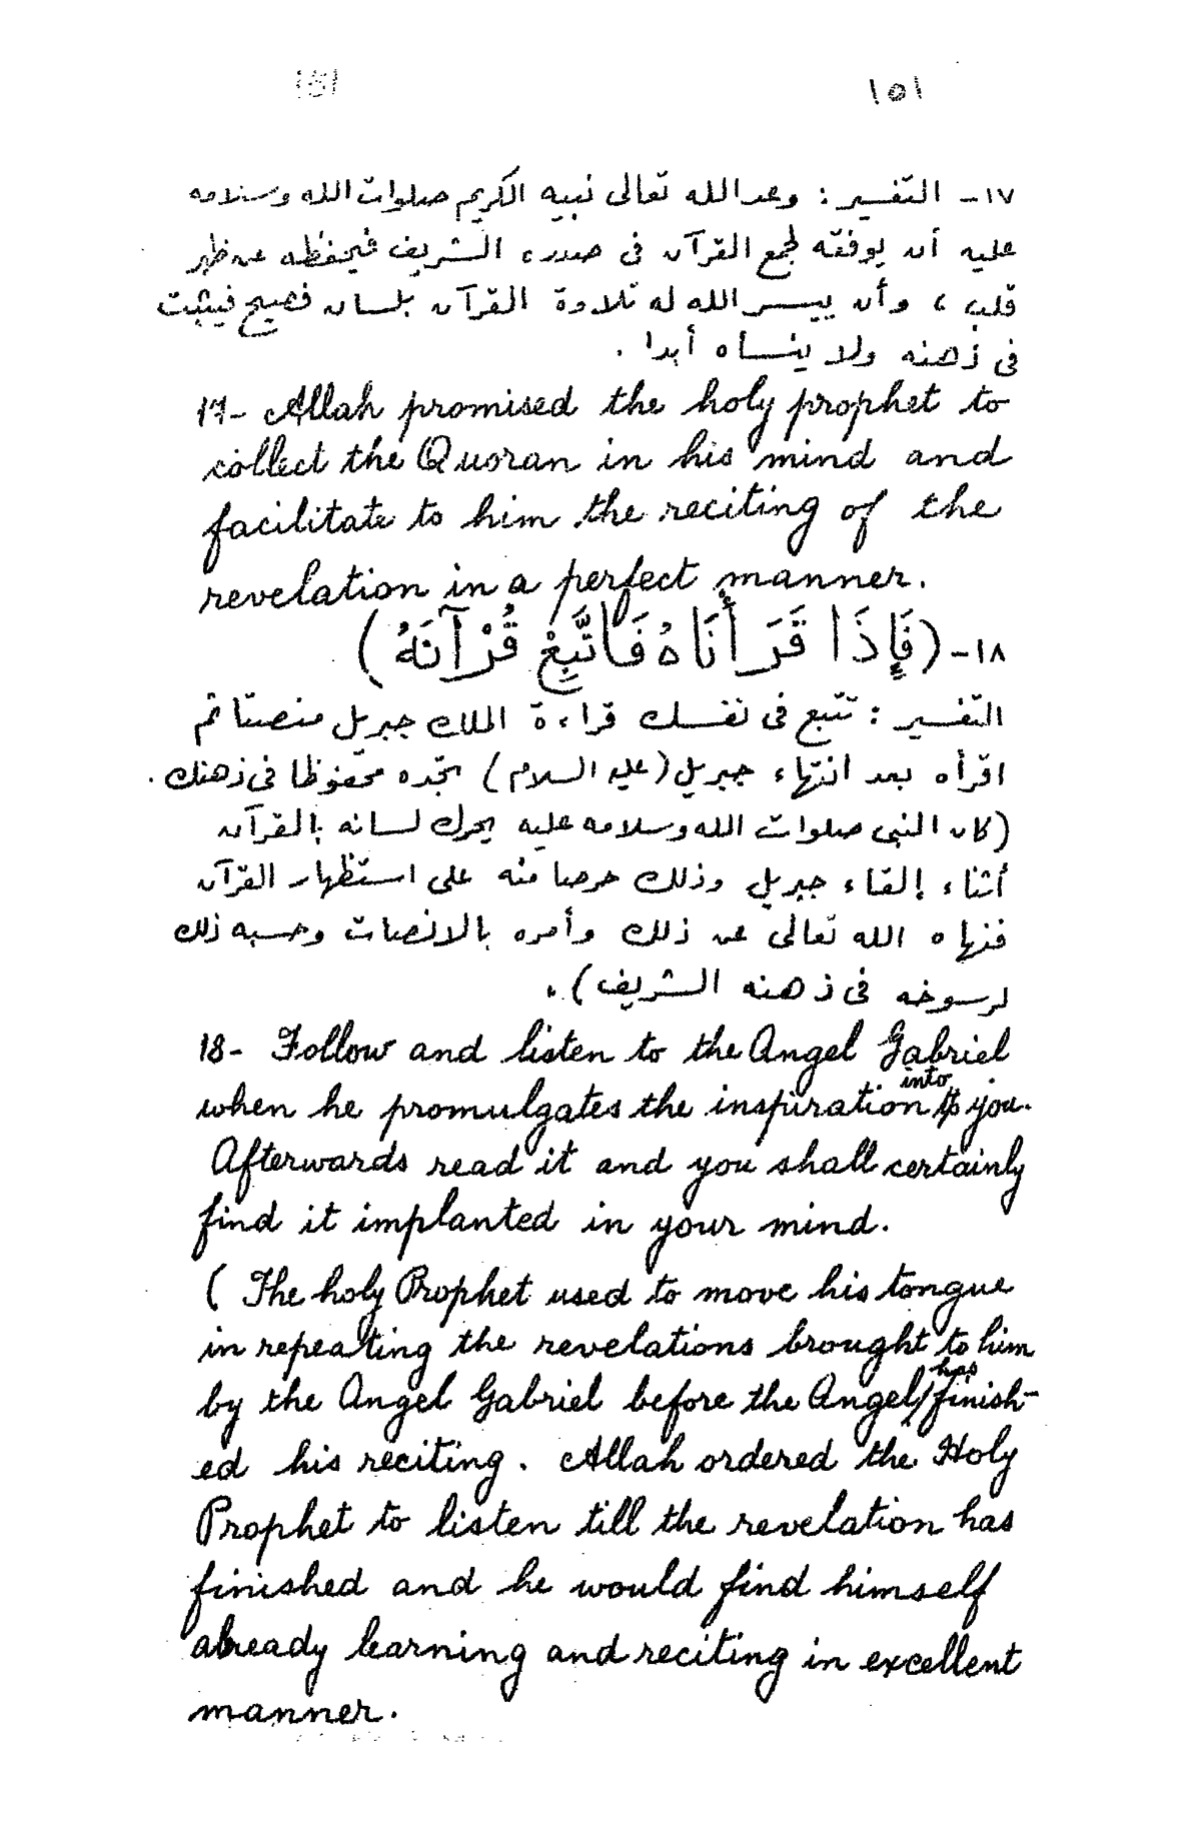 ١٥١
١٧- التفسير : وعد الله تعالى نبيه الكريم صلوات الله وسلامه
عليه أن يوفقه لجمع القرآن فى صدره الشريف فيحفظه عن ظهر
قلب ، وأن ييسر الله له تلاوة القرآن بلسان فصيح فيثبت
فى ذهنه ولا ينساه أبدا .
17- Allah promised the holy prophet to
collect the Quoran in his mind and
facilitate to him the reciting of the
revelation in a perfect manner.
١٨- (فَإِذَا قَرَأْنَاهُ فَاتَّبِعْ قُرْآنَهُ)
التفسير : تتبع فى نفسك قراءة الملاك جبريل منصتا ثم
اقرأه بعد انتهاء جبريل (عليه السلام) تجده محفوظا فى ذهنك .
(كان النبى صلوات الله وسلامه عليه يحرك لسانه بالقرآن
أثناء إلقاء جبريل وذلك حرصا منه على استظهار القرآن
فنهاه الله تعالى عن ذلك وأمره بالانصات وحسبه ذلك
لرسوخه فى ذهنه الشريف) .
18- Follow and listen to the Angel Gabriel
when he promulgates the inspiration into you.
Afterwards read it and you shall certainly
find it implanted in your mind.
( The holy Prophet used to move his tongue
in repeating the revelations brought to him
by the Angel Gabriel before the Angel has finish-
ed his reciting. Allah ordered the Holy
Prophet to listen till the revelation has
finished and he would find himself
already learning and reciting in excellent
manner.